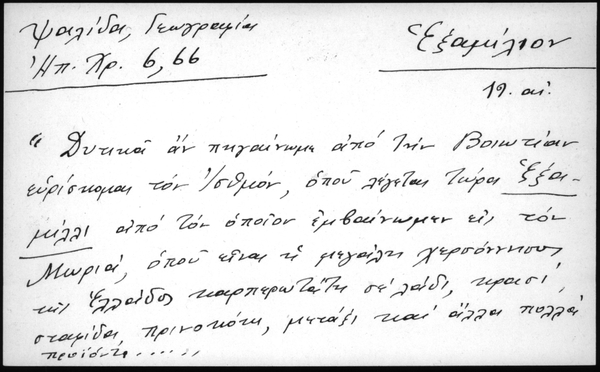 Ψαλίδα, Γεωγραφία
Ἠπ. Χρ. 6, 66
Ἑξαμίλιον
19. αἰ.
" Δυτικὰ ἂν πηγαίνωμε ἀπὸ τὴν Βοιωτίαν
εὑρίσκομαι τὸν Ἰσθμόν, ὁποῦ λέγεται τώρα Ἑξά-
μιλλι ἀπὸ τὸν ὁποῖον ἐμβαίνωμεν εἰς τὸν
Μωριά, ὁποῦ εἶναι ἡ μεγάλη χερσόννησος
τῆς Ἑλλάδος καρπερωτάτη σὲ λάδι, κρασί,
σταφίδα, πρινοκόκι, μετάξι καὶ ἄλλα πολλὰ
προϊόντα.....,